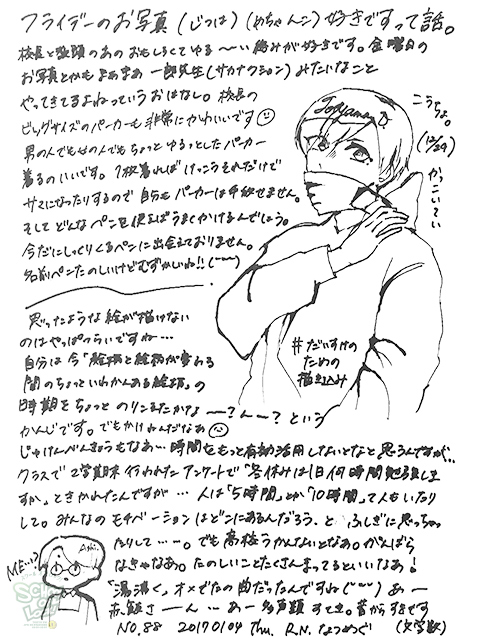 フライデーのお写真（じつは）（めちゃんこ）好きですって話。
校長と教頭のあのおもしろくてゆる〜い絡みが好きです。金曜日の
お写真とかもまぁまあ一郎先生（サカナクション）みたいなこと
やってきてるよねっていうおはなし。校長の
ビッグサイズのパーカーも非常にかわいいです
男の人でも女の人でもちょっとゆるっとしたパーカー
着るのいいです。1枚着ればけっこうそれだけで
サマになったりするので自分もパーカーは手放せません。
そしてどんなペンを使えばうまくかけるんでしょう。
今だにしっくりくるペンに出会えておりません。
名前ペンたのしいけどむずかしいね!!
Toyama
こうちょ。
(12/29)
かっこいてい
思ったような絵が描けない
のはやっぱつらいですね…
自分は今「絵柄と絵柄が変わる
間のちょっといわかんある絵柄」の
時期をちょっとのりこえたかな〜？ん〜？という
かんじです。でもかけねんだなあ
#だいすけの
ための
描き込み
じゃけんべんきょうもなあ…時間をもっと有効活用しないとなと思うんですが…
クラスで2学期末行われたアンケートで「冬休みは1日何時間勉強しま
すか」ときかれたんですが…人は「5時間」とか「10時間」て人もいたり
して。みんなのモチベーションはどこにあるんだろう、とふしぎに思っちゃっ
たりして…。でも高校うかんないとなあ。がんばら
なきゃなあ。たのしいことたくさんまってるといいなあ！
「湯沸く」オメでたの曲だったんですね あー
赤飯さーん…あー多声類すてき。昔からすきです
ME…?
Ashi.
NO.88 20170104 Thu. R.N. なつめぐ（文学界）